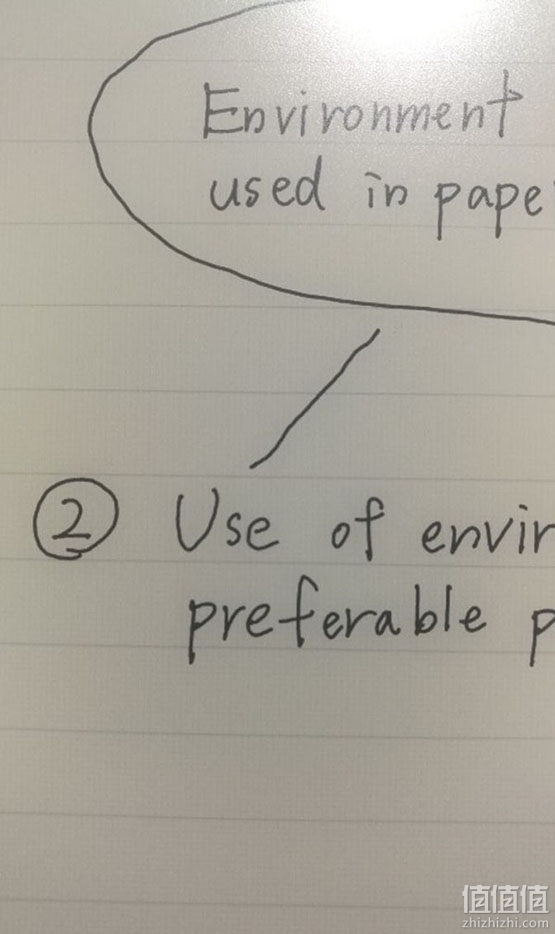 Environment
used in pape
② Use of envir
preferable p
值值值
zhizhizhi.com